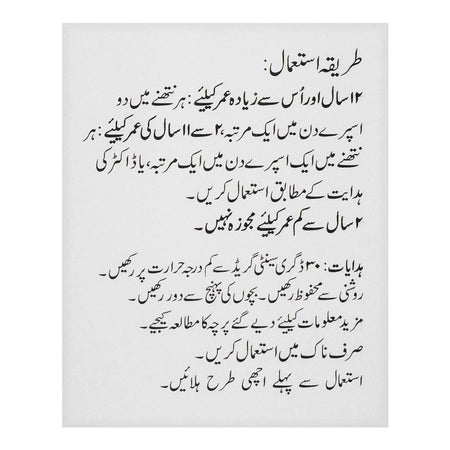 طریقہ استعمال:
۱۲ سال اور اُس سے زیادہ عمر کیلئے: ہر نتھنے میں دو
اسپرے دن میں ایک مرتبہ، ۲ سے ۱۱ سال کی عمر کیلئے: ہر
نتھنے میں ایک اسپرے دن میں ایک مرتبہ، یا ڈاکٹر کی
ہدایت کے مطابق استعمال کریں۔
۲ سال سے کم عمر کیلئے مجوزہ نہیں۔
ہدایات: ۳۰ ڈگری سینٹی گریڈ سے کم درجہ حرارت پر رکھیں۔
روشنی سے محفوظ رکھیں۔ بچوں کی پہنچ سے دور رکھیں۔
مزید معلومات کیلئے دیے گئے پرچہ کا مطالعہ کیجیے۔
صرف ناک میں استعمال کریں۔
استعمال سے پہلے اچھی طرح ہلائیں۔